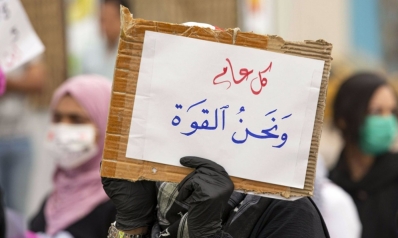 كل عام
ونَحنُ القوَة